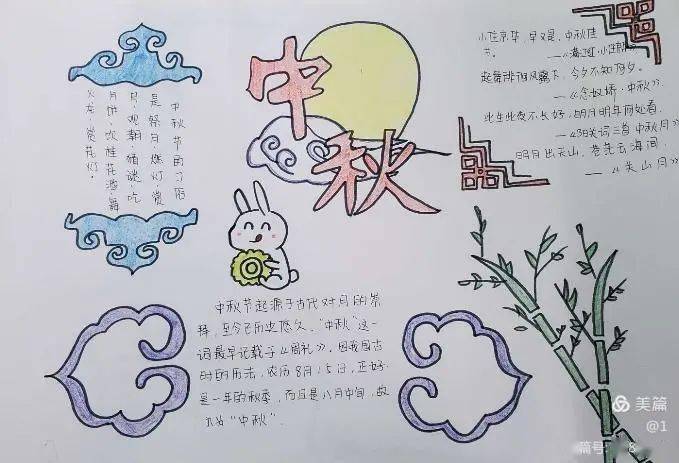 中秋
中秋节的习俗
是祭月、燃灯、赏
月、观潮、猜谜、吃
月饼、饮桂花酒、舞
火龙、赏花灯.
小住京华,早又是,中秋佳
节。
起舞徘徊风露下,今夕不知何夕。
——《念奴娇·中秋》
此生此夜不长好,明月明年何处看.
——《阳关词三首 中秋月》
明月出天山,苍茫云海间.
——《关山月》
中秋节起源于古代对月的崇
拜,至今已历史悠久,“中秋”这一
词最早记载于《周礼》。因我国古
时的历法,农历8月15日,正好
是一年的秋季,而且是八月中间,故
“中秋”.
美篇
@1
篇号
8